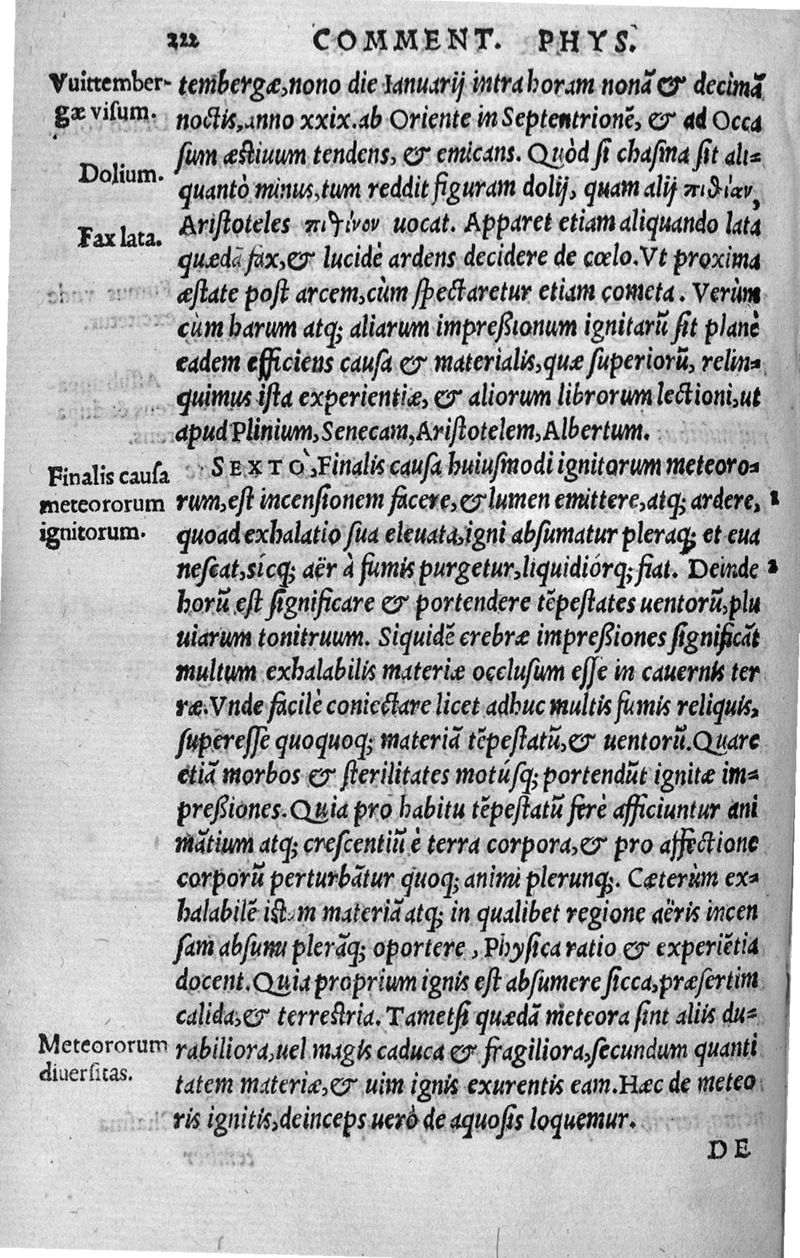 222 COMMENT. PHYS.
Vuittember-
gæ visum.
tembergæ,nono die Ianuarij intra horam nonā & decimā
noctis,anno xxix.ab Oriente in Septentrionē, & ad Occa
sum æstiuum tendens, & emicans. Quòd si chasma sit ali-
Dolium.
quantò minus,tum reddit figuram dolij, quam alij πιθίαν,
Fax lata.
Aristoteles πιθίνον uocat. Apparet etiam aliquando lata
quædā fax,& lucidè ardens decidere de cœlo.Vt proxima
æstate post arcem,cùm spectaretur etiam cometa. Verùm
cùm harum atq; aliarum impreßionum ignitarū sit planè
eadem efficiens causa & materialis,quæ superiorū, relin-
quimus ista experientiæ, & aliorum librorum lectioni,ut
apud Plinium,Senecam,Aristotelem,Albertum.
Finalis causa
meteororum
ignitorum.
SEXTO`,Finalis causa huiusmodi ignitorum meteoro-
rum,est incensionem facere,& lumen emittere,atq; ardere, 1
quoad exhalatio sua eleuata,igni absumatur pleraq; et eua
nescat,sícq; aër à fumis purgetur,liquidiórq; fiat. Deinde 2
horū est significare & portendere tēpestates uentorū,plu
uiarum tonitruum. Siquidē crebræ impreßiones significāt
multum exhalabilis materiæ occlusum esse in cauernis ter
ræ.Vnde facilè coniectare licet adhuc multis fumis reliquis,
superesse quoquoq; materiā tēpestatū,& uentorū.Quare
etiā morbos & sterilitates motúsq; portendūt ignitæ im-
preßiones.Quia pro habitu tēpestatū ferè afficiuntur ani
mātium atq; crescentiū è terra corpora,& pro affectione
corporū perturbātur quoq; animi plerunq;. Cæterùm ex-
halabilē istam materiā atq; in qualibet regione aëris incen
sam absumi plerāq; oportere, Physica ratio & experiētia
docent.Quia proprium ignis est absumere sicca,præsertim
calida,& terrestria. Tametsi quædā meteora sint aliis du-
Meteororum
diuersitas.
rabiliora,uel magis caduca & fragiliora,secundum quanti
tatem materiæ,& uim ignis exurentis eam.Hæc de meteo
ris ignitis,deinceps uerò de aquosis loquemur.
DE